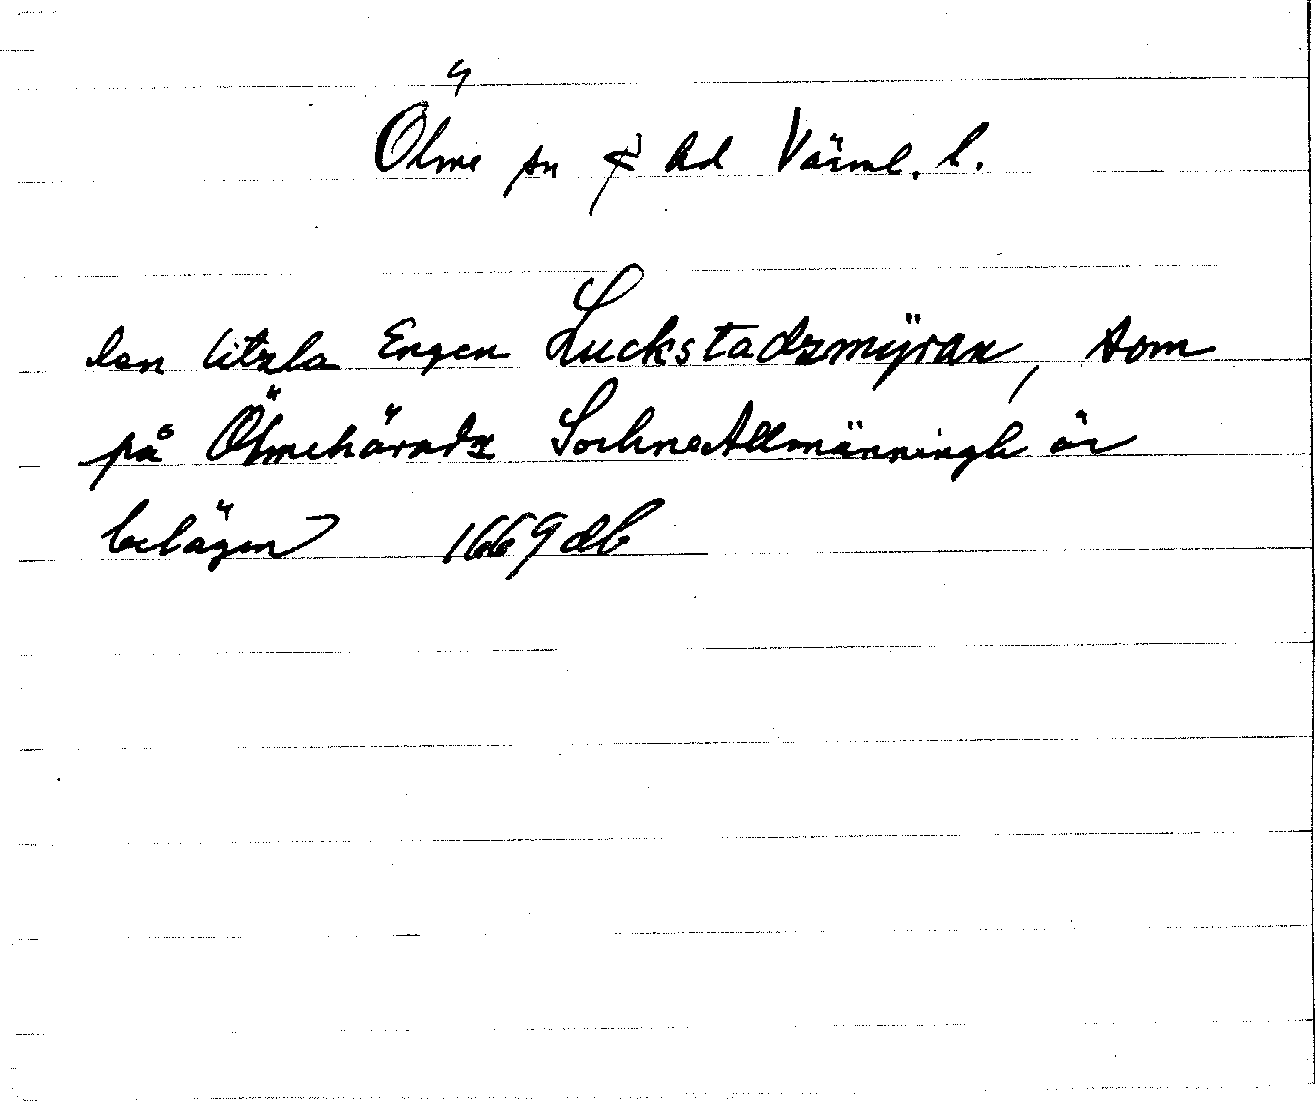 Ölme sn & hd Värml. l.
den litzla Engen Luckstadzmÿran, som
på Ölmehäradz SochneAllmänningh är
belägen 1669 db